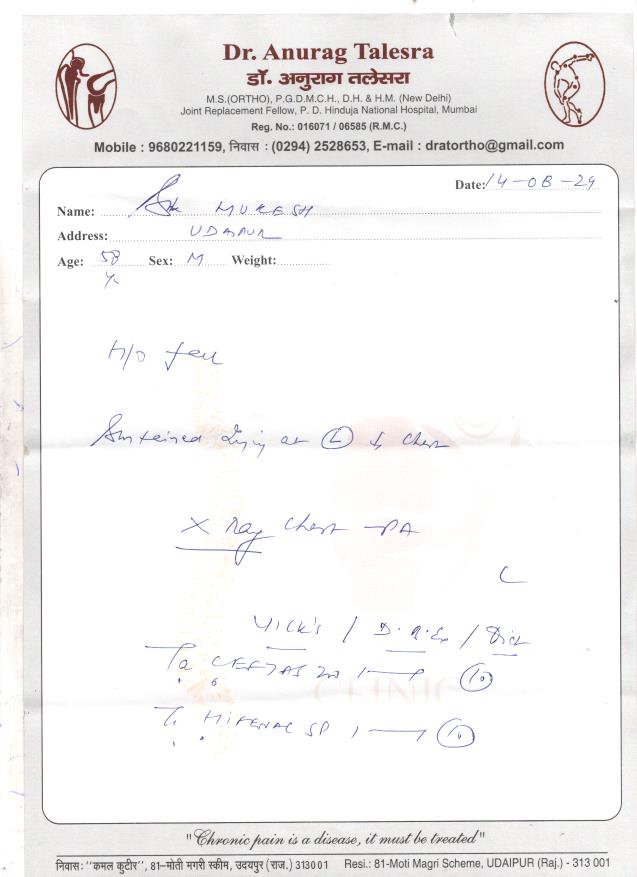 Dr. Anurag Talesra
डॉ. अनुराग तलेसरा
M.S.(ORTHO), P.G.D.M.C.H., D.H. & H.M. (New Delhi)
Joint Replacement Fellow, P. D. Hinduja National Hospital, Mumbai
Reg. No.: 016071 / 06585 (R.M.C.)
Mobile : 9680221159, निवास : (0294) 2528653, E-mail : dratortho@gmail.com
Date: 14-08-29
Name: MUKESH
Address: UDAIPUR
Age: 58 Sex: M Weight:
Yr
H/O fall
Sustained Injury at L Chest
X Ray Chest - PA
VICK'S / D.B.Ex /
CEFTAS 200 1 10
HIFENAC SP 1 10
CLINIC
"Chronic pain is a disease, it must be treated"
निवास: "कमल कुटीर", 81-मोती मगरी स्कीम, उदयपुर (राज.) 313001 Resi.: 81-Moti Magri Scheme, UDAIPUR (Raj.) - 313 001